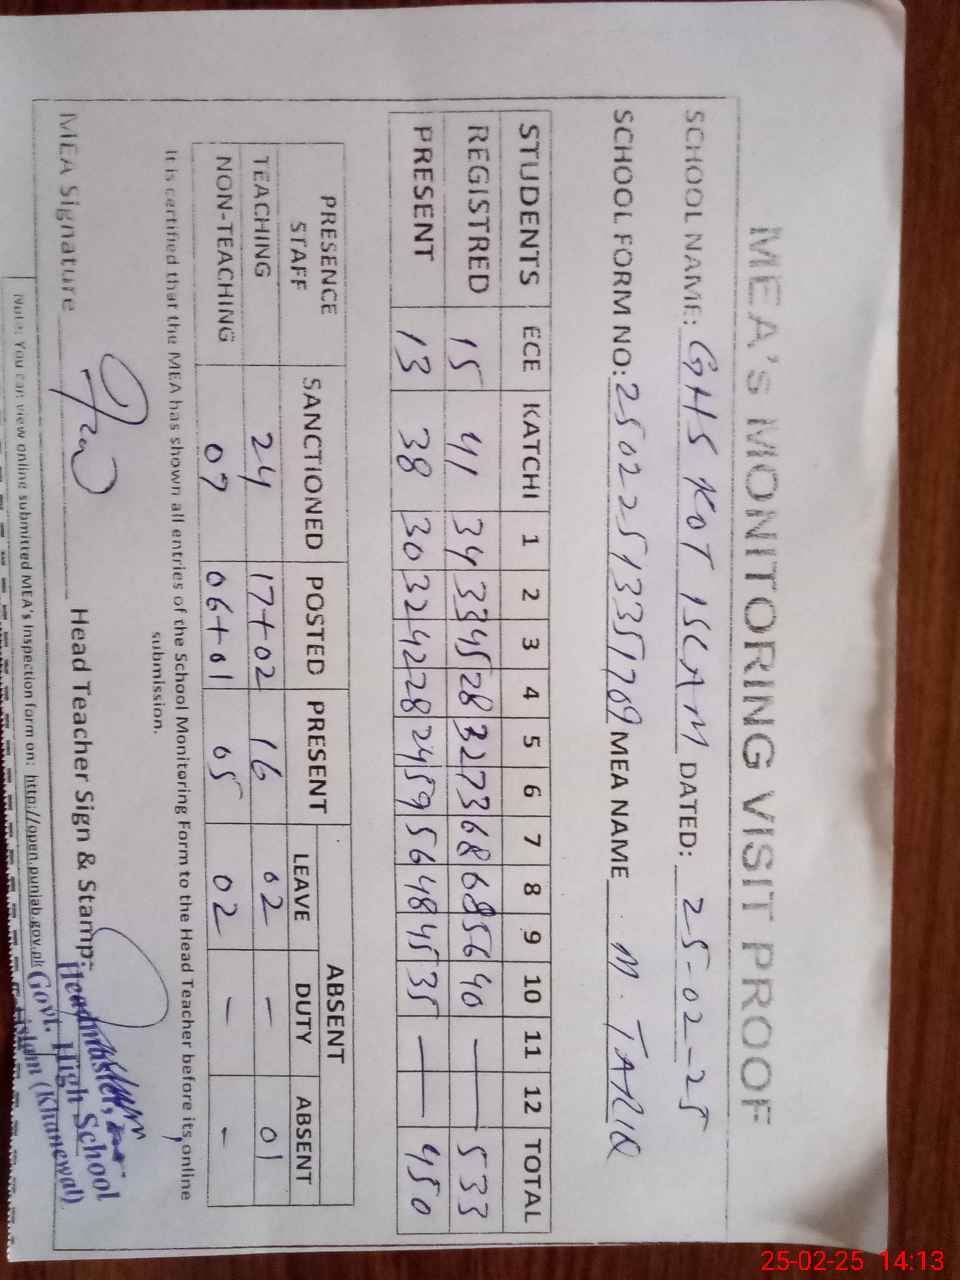 MEA's MONITORING VISIT PROOF
SCHOOL NAME: GHS KOT ISLAM DATED: 25-02-25
SCHOOL FORM NO: 25022513351709 MEA NAME M. TARIQ
STUDENTS ECE KATCHI 1 2 3 4 5 6 7 8 9 10 11 12 TOTAL
REGISTRED 15 41 34 33 45 28 32 73 68 68 56 40 — 533
PRESENT 13 38 30 32 42 28 24 59 56 48 45 35 — 450
PRESENCE STAFF SANCTIONED POSTED PRESENT ABSENT
LEAVE DUTY ABSENT
TEACHING 24 17+02 16 02 — 01
NON-TEACHING 07 06+01 05 02 — -
It is certified that the MEA has shown all entries of the School Monitoring Form to the Head Teacher before its online
submission.
MEA Signature Head Teacher Sign & Stamp:
Headmaster,
Govt. High School
Islam (Khanewal)
Note: You can view online submitted MEA's Inspection form on: http://open.punjab.gov.pk
25-02-25 14:13